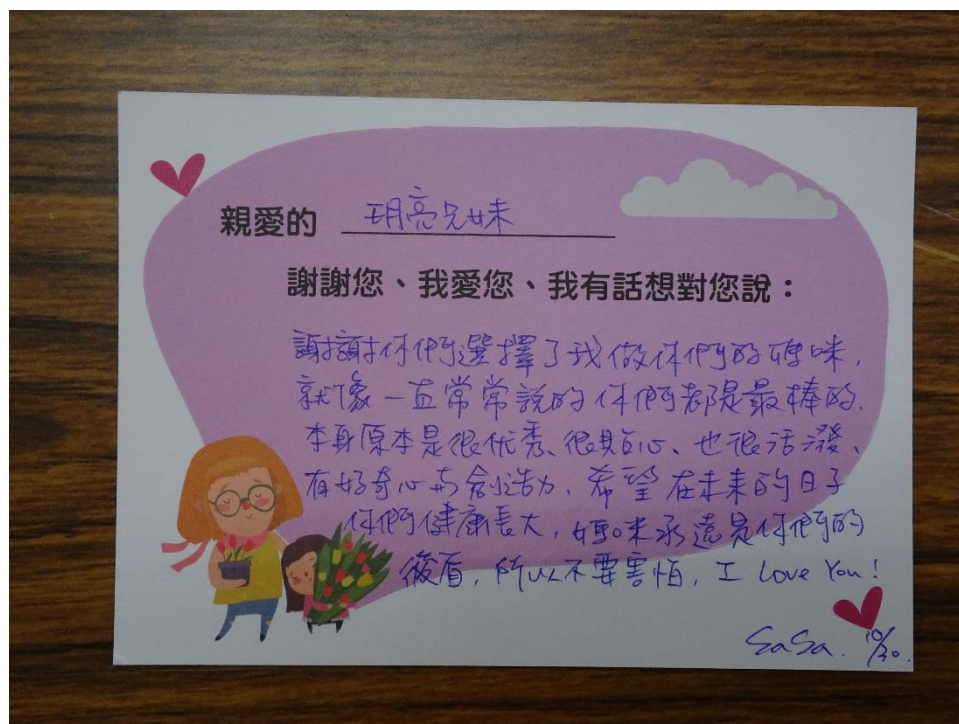 親愛的 玥亮兄妹
謝謝您、我愛您、我有話想對您說：
謝謝你們選擇了我做你們的媽咪，
就像一直常常說的你們都是最棒的、
本身原本是很优秀、很貼心、也很活潑、
有好奇心與創造力，希望在未來的日子
你們健康長大，媽咪永遠是你們的
後盾，所以不要害怕，I Love You!
SaSa. 10/30.